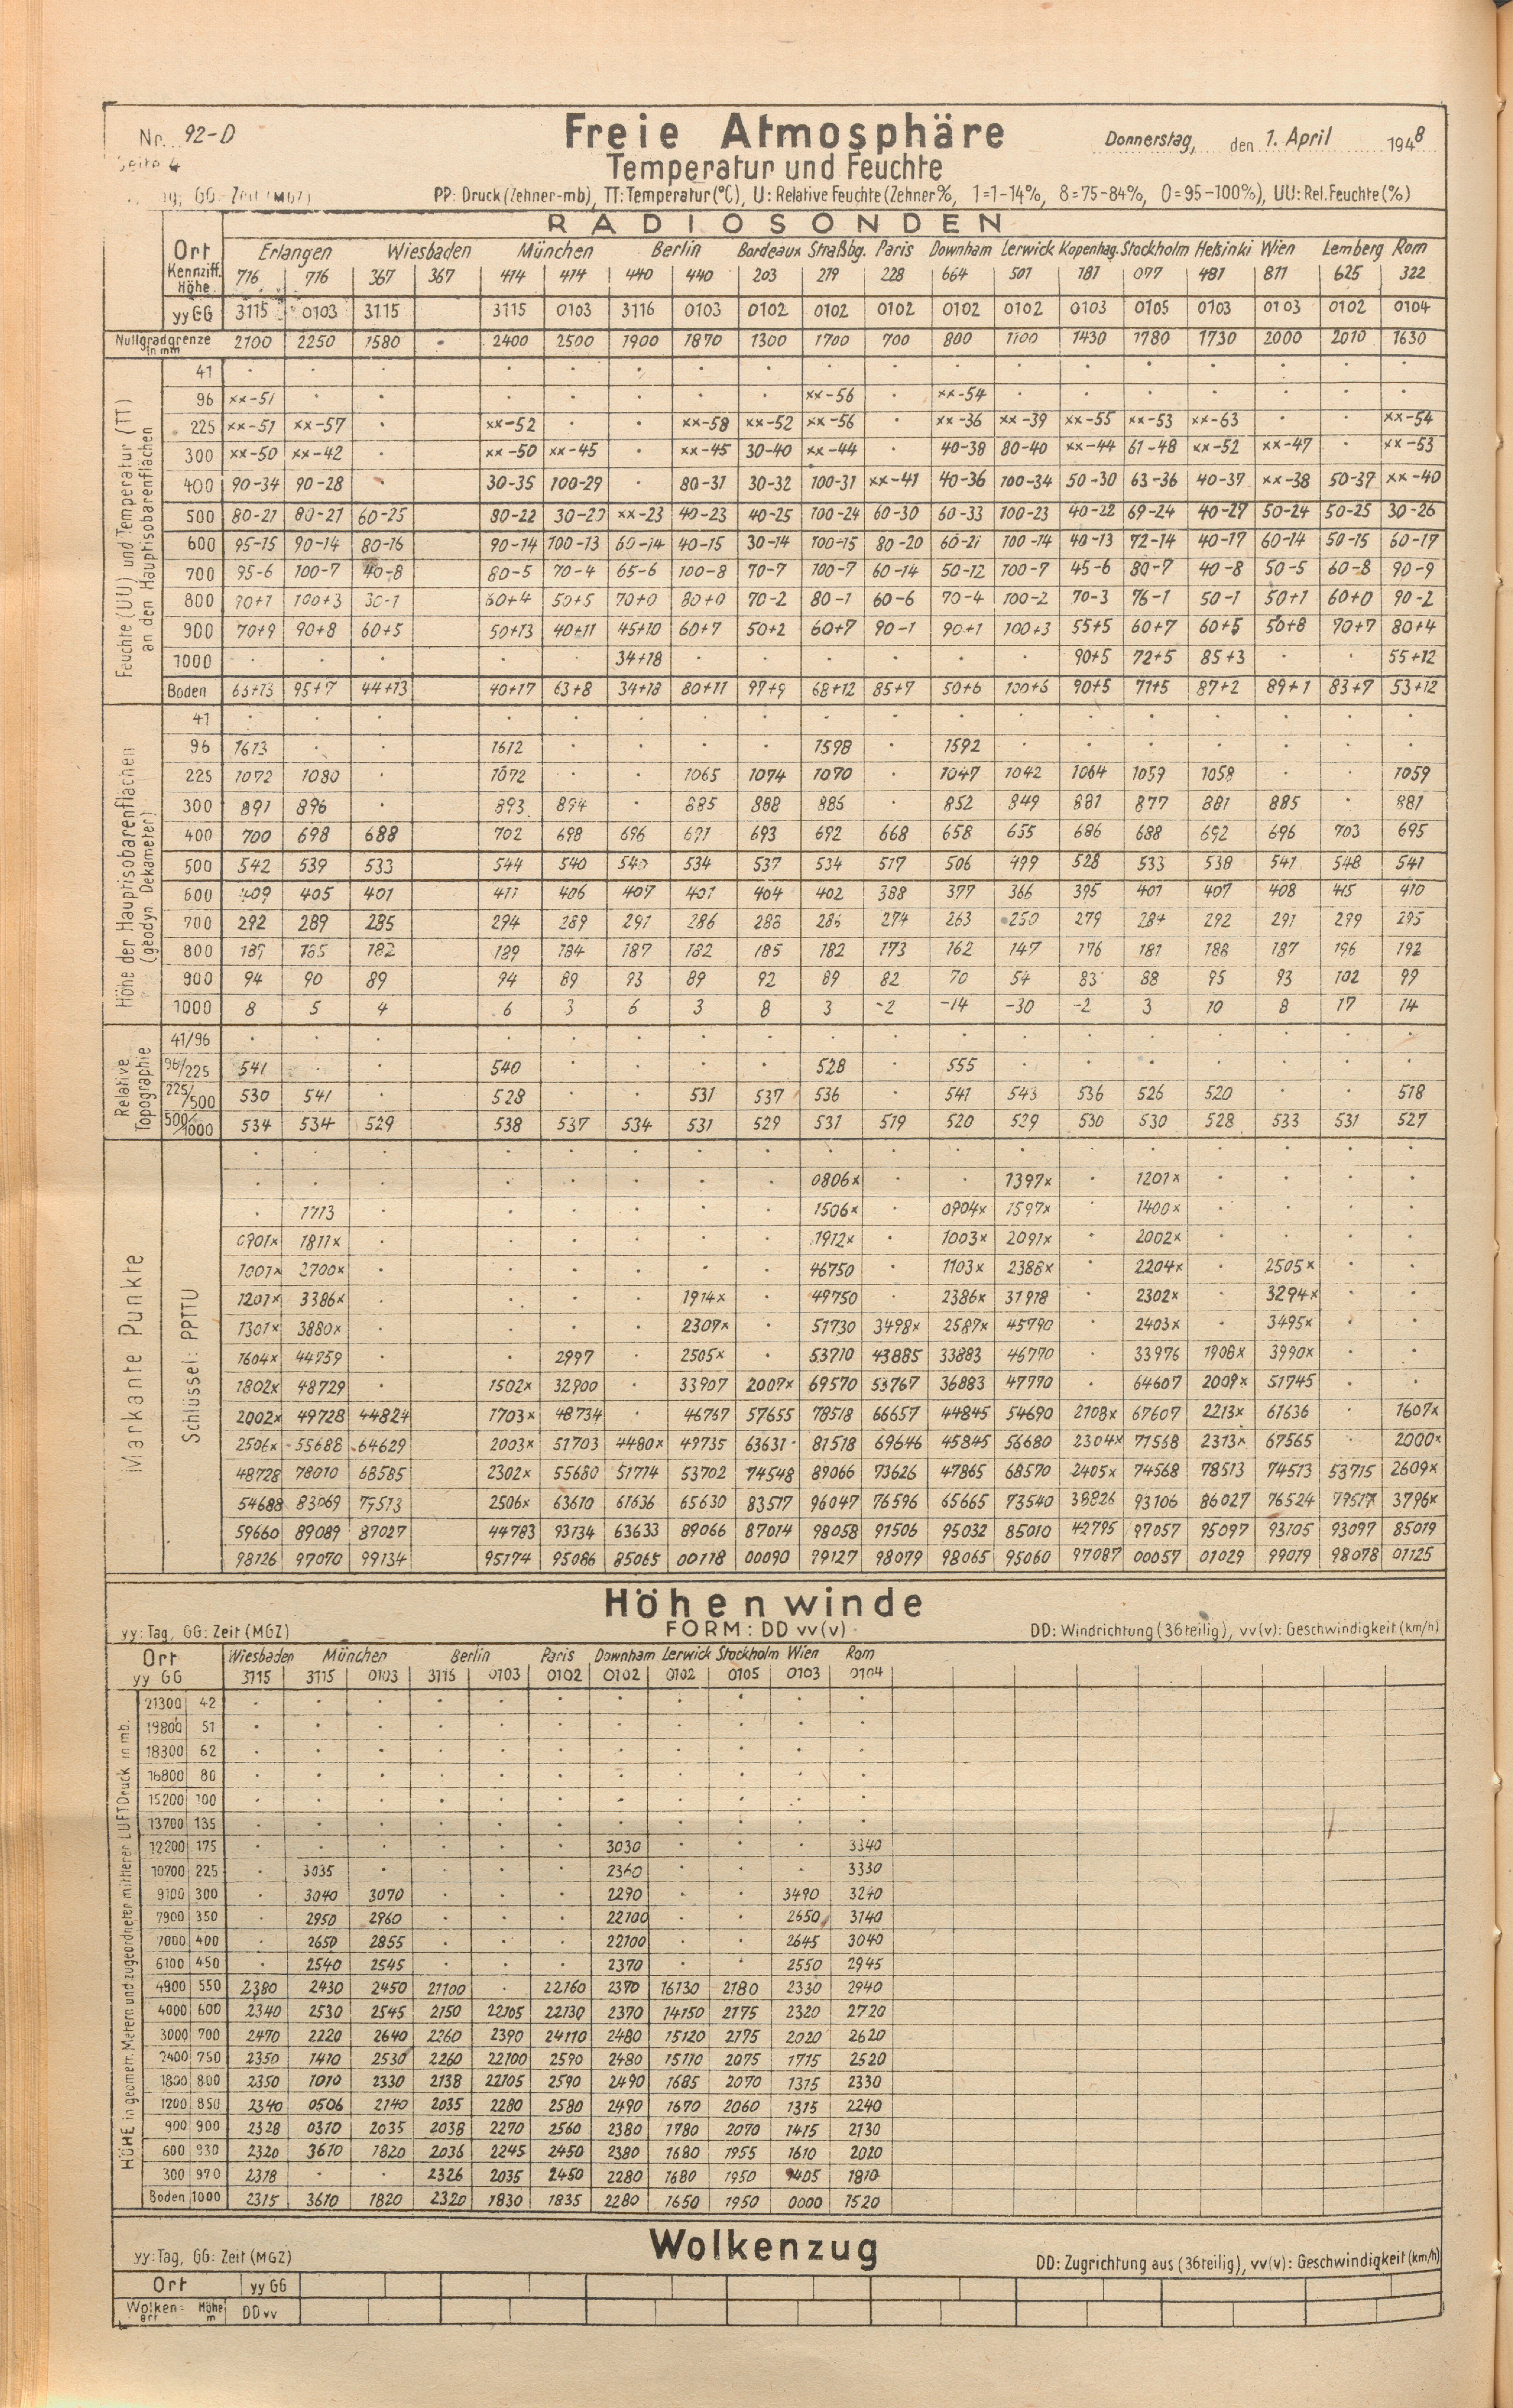 Nr. 92-D
Freie Atmosphäre
Donnerstag, den 1. April 1948
Seite 4
Temperatur und Feuchte
GG: Zeit (MGZ)
PP: Druck (Zehner-mb), TT: Temperatur (°C), U: Relative Feuchte (Zehner %, 1=1-14%, 8=75-84%, 0=95-100%), UU: Rel. Feuchte (%)
RADIOSONDEN
Ort Erlangen Wiesbaden München Berlin Bordeaux Straßbg. Paris Downham Lerwick Kopenhag. Stockholm Helsinki Wien Lemberg Rom
Kennziff. Höhe 716 716 367 367 414 414 440 440 203 219 228 664 501 181 077 481 811 625 322
yy GG 3115 0103 3115 3115 0103 3116 0103 0102 0102 0102 0102 0102 0103 0105 0103 0103 0102 0104
Nullgradgrenze in mm 2100 2250 1580 . 2400 2500 1900 1870 1300 1700 700 800 1100 1430 1780 1730 2000 2010 1630
Feuchte (UU) und Temperatur (TT) an den Hauptisobarenflächen
41 . . . . . . . . . . . . . . . . . .
96 xx-51 . . . . . . . xx-56 . xx-54 . . . . . . .
225 xx-51 xx-57 . xx-52 . . xx-58 xx-52 xx-56 . xx-36 xx-39 xx-55 xx-53 xx-63 . . xx-54
300 xx-50 xx-42 . xx-50 xx-45 . xx-45 30-40 xx-44 . 40-38 80-40 xx-44 61-48 xx-52 xx-47 . xx-53
400 90-34 90-28 . 30-35 100-29 . 80-31 30-32 100-31 xx-41 40-36 100-34 50-30 63-36 40-37 xx-38 50-37 xx-40
500 80-21 80-21 60-25 80-22 30-20 xx-23 40-23 40-25 100-24 60-30 60-33 100-23 40-22 69-24 40-27 50-24 50-25 30-26
600 95-15 90-14 80-16 90-14 100-13 60-14 40-15 30-14 100-15 80-20 60-21 100-14 40-13 72-14 40-17 60-14 50-15 60-17
700 95-6 100-7 40-8 80-5 70-4 65-6 100-8 70-7 100-7 60-14 50-12 100-7 45-6 80-7 40-8 50-5 60-8 90-9
800 70+1 100+3 30-1 60+4 50+5 70+0 80+0 70-2 80-1 60-6 70-4 100-2 70-3 76-1 50-1 50+1 60+0 90-2
900 70+9 90+8 60+5 50+13 40+11 45+10 60+7 50+2 60+7 90-1 90+1 100+3 55+5 60+7 60+5 50+8 70+7 80+4
1000 . . . . . 34+18 . . . . . . 90+5 72+5 85+3 . . 55+12
Boden 63+13 95+7 44+13 40+17 63+8 34+18 80+11 97+9 68+12 85+7 50+6 100+6 90+5 71+5 87+2 89+1 83+7 53+12
Höhe der Hauptisobarenflächen (geodyn. Dekameter)
41 . . . . . . . . . . . . . . . . . .
96 1613 . . 1612 . . . . 1598 . 1592 . . . . . . .
225 1072 1080 . 1072 . . 1065 1074 1070 . 1047 1042 1064 1059 1058 . . 1059
300 891 896 . 893 894 . 885 888 885 . 852 849 881 877 881 885 . 881
400 700 698 688 702 698 696 691 693 692 668 658 655 686 688 692 696 703 695
500 542 539 533 544 540 540 534 537 534 517 506 499 528 533 538 541 548 541
600 409 405 401 411 406 407 401 404 402 388 377 366 395 401 407 408 415 410
700 292 289 285 294 289 291 286 288 286 274 263 250 279 284 292 291 299 295
800 189 185 182 189 184 187 182 185 182 173 162 147 176 181 188 187 196 192
900 94 90 89 94 89 93 89 92 89 82 70 54 83 88 95 93 102 99
1000 8 5 4 6 3 6 3 8 3 -2 -14 -30 -2 3 10 8 17 14
Relative Topographie
41/96 . . . . . . . . . . . . . . . . . .
96/225 541 . . 540 . . . . 528 . 555 . . . . . . .
225/500 530 541 . 528 . . 531 537 536 . 541 543 536 526 520 . . 518
500/1000 534 534 529 538 537 534 531 529 531 519 520 529 530 530 528 533 531 527
Markante Punkte
Schlüssel: PPTTU
. . . . . . . . . . . . . . . . . .
. . . . . . . . 0806x . . 1397x . 1201x . . . .
. 1713 . . . . . . 1506x . 0904x 1597x . 1400x . . . .
0901x 1811x . . . . . . 1912x . 1003x 2091x . 2002x . . . .
1001x 2700x . . . . . . 46750 . 1103x 2388x . 2204x . 2505x . .
1201x 3386x . . . . 1914x . 49750 . 2386x 31918 . 2302x . 3294x . .
1301x 3880x . . . . 2307x . 51730 3498x 2587x 45790 . 2403x . 3495x . .
1604x 44759 . . 2997 2505x . 53710 43885 33883 46770 . 33976 1908x 3990x . .
1802x 48729 . 1502x 32900 . 33907 2007x 69570 53767 36883 47770 . 64607 2009x 51745 . .
2002x 49728 44824 1703x 48734 . 46767 57655 78518 66657 44845 54690 2108x 67607 2213x 61636 . 1607x
2506x 55688 64629 2003x 51703 4480x 49735 63631 81518 69646 45845 56680 2304x 71568 2313x 67565 . 2000x
48728 78010 68585 2302x 55680 51714 53702 74548 89066 73626 47865 68570 2405x 74568 78513 74513 53715 2609x
54688 83069 77513 2506x 63610 61636 65630 83517 96047 76596 65665 73540 38826 93106 86027 76524 79517 3796x
59660 89089 87027 44783 93134 63633 89066 87014 98058 91506 95032 85010 42795 97057 95097 93105 93097 85019
98126 97070 99134 95174 95086 85065 00118 00090 99127 98079 98065 95060 97087 00057 01029 99019 98078 01125
Höhenwinde
yy: Tag, GG: Zeit (MGZ)
FORM: DD vv(v)
DD: Windrichtung (36teilig), vv(v): Geschwindigkeit (km/h)
Ort Wiesbaden München Berlin Paris Downham Lerwick Stockholm Wien Rom
yy GG 3115 3115 0103 3116 0103 0102 0102 0102 0105 0103 0104
HÖHE in geometr. Metern und zugeordneter mittlerer LUFTDruck in mb.
21300 42 . . . . . . . . . . .
19800 51 . . . . . . . . . . .
18300 62 . . . . . . . . . . .
16800 80 . . . . . . . . . . .
15200 100 . . . . . . . . . . .
13700 135 . . . . . . . . . . .
12200 175 . . . . . . 3030 . . . 3340
10700 225 . 3035 . . . . 2360 . . . 3330
9100 300 . 3040 3070 . . . 2290 . . 3490 3240
7900 350 . 2950 2960 . . . 22100 . . 2650 3140
7000 400 . 2650 2855 . . . 22100 . . 2645 3040
6100 450 . 2540 2545 . . . 2370 . . 2550 2945
4900 550 2380 2430 2450 21100 . 22160 2370 16130 2180 2330 2940
4000 600 2340 2530 2545 2150 22105 22130 2370 14150 2175 2320 2720
3000 700 2470 2220 2640 2260 2390 24110 2480 15120 2175 2020 2620
2400 750 2350 1410 2530 2260 22100 2590 2480 15110 2075 1715 2520
1800 800 2350 1010 2330 2138 22105 2590 2490 1685 2070 1315 2330
1200 850 2340 0506 2140 2035 2280 2580 2490 1670 2060 1315 2240
900 900 2328 0310 2035 2038 2270 2560 2380 1780 2070 1415 2130
600 930 2320 3610 1820 2036 2245 2450 2380 1680 1955 1610 2020
300 970 2318 . . 2326 2035 2450 2280 1680 1950 1405 1810
Boden 1000 2315 3610 1820 2320 1830 1835 2280 1650 1950 0000 1520
Wolkenzug
yy: Tag, GG: Zeit (MGZ)
DD: Zugrichtung aus (36teilig), vv(v): Geschwindigkeit (km/h)
Ort yy GG
Wolken-art Höhe m DD vv